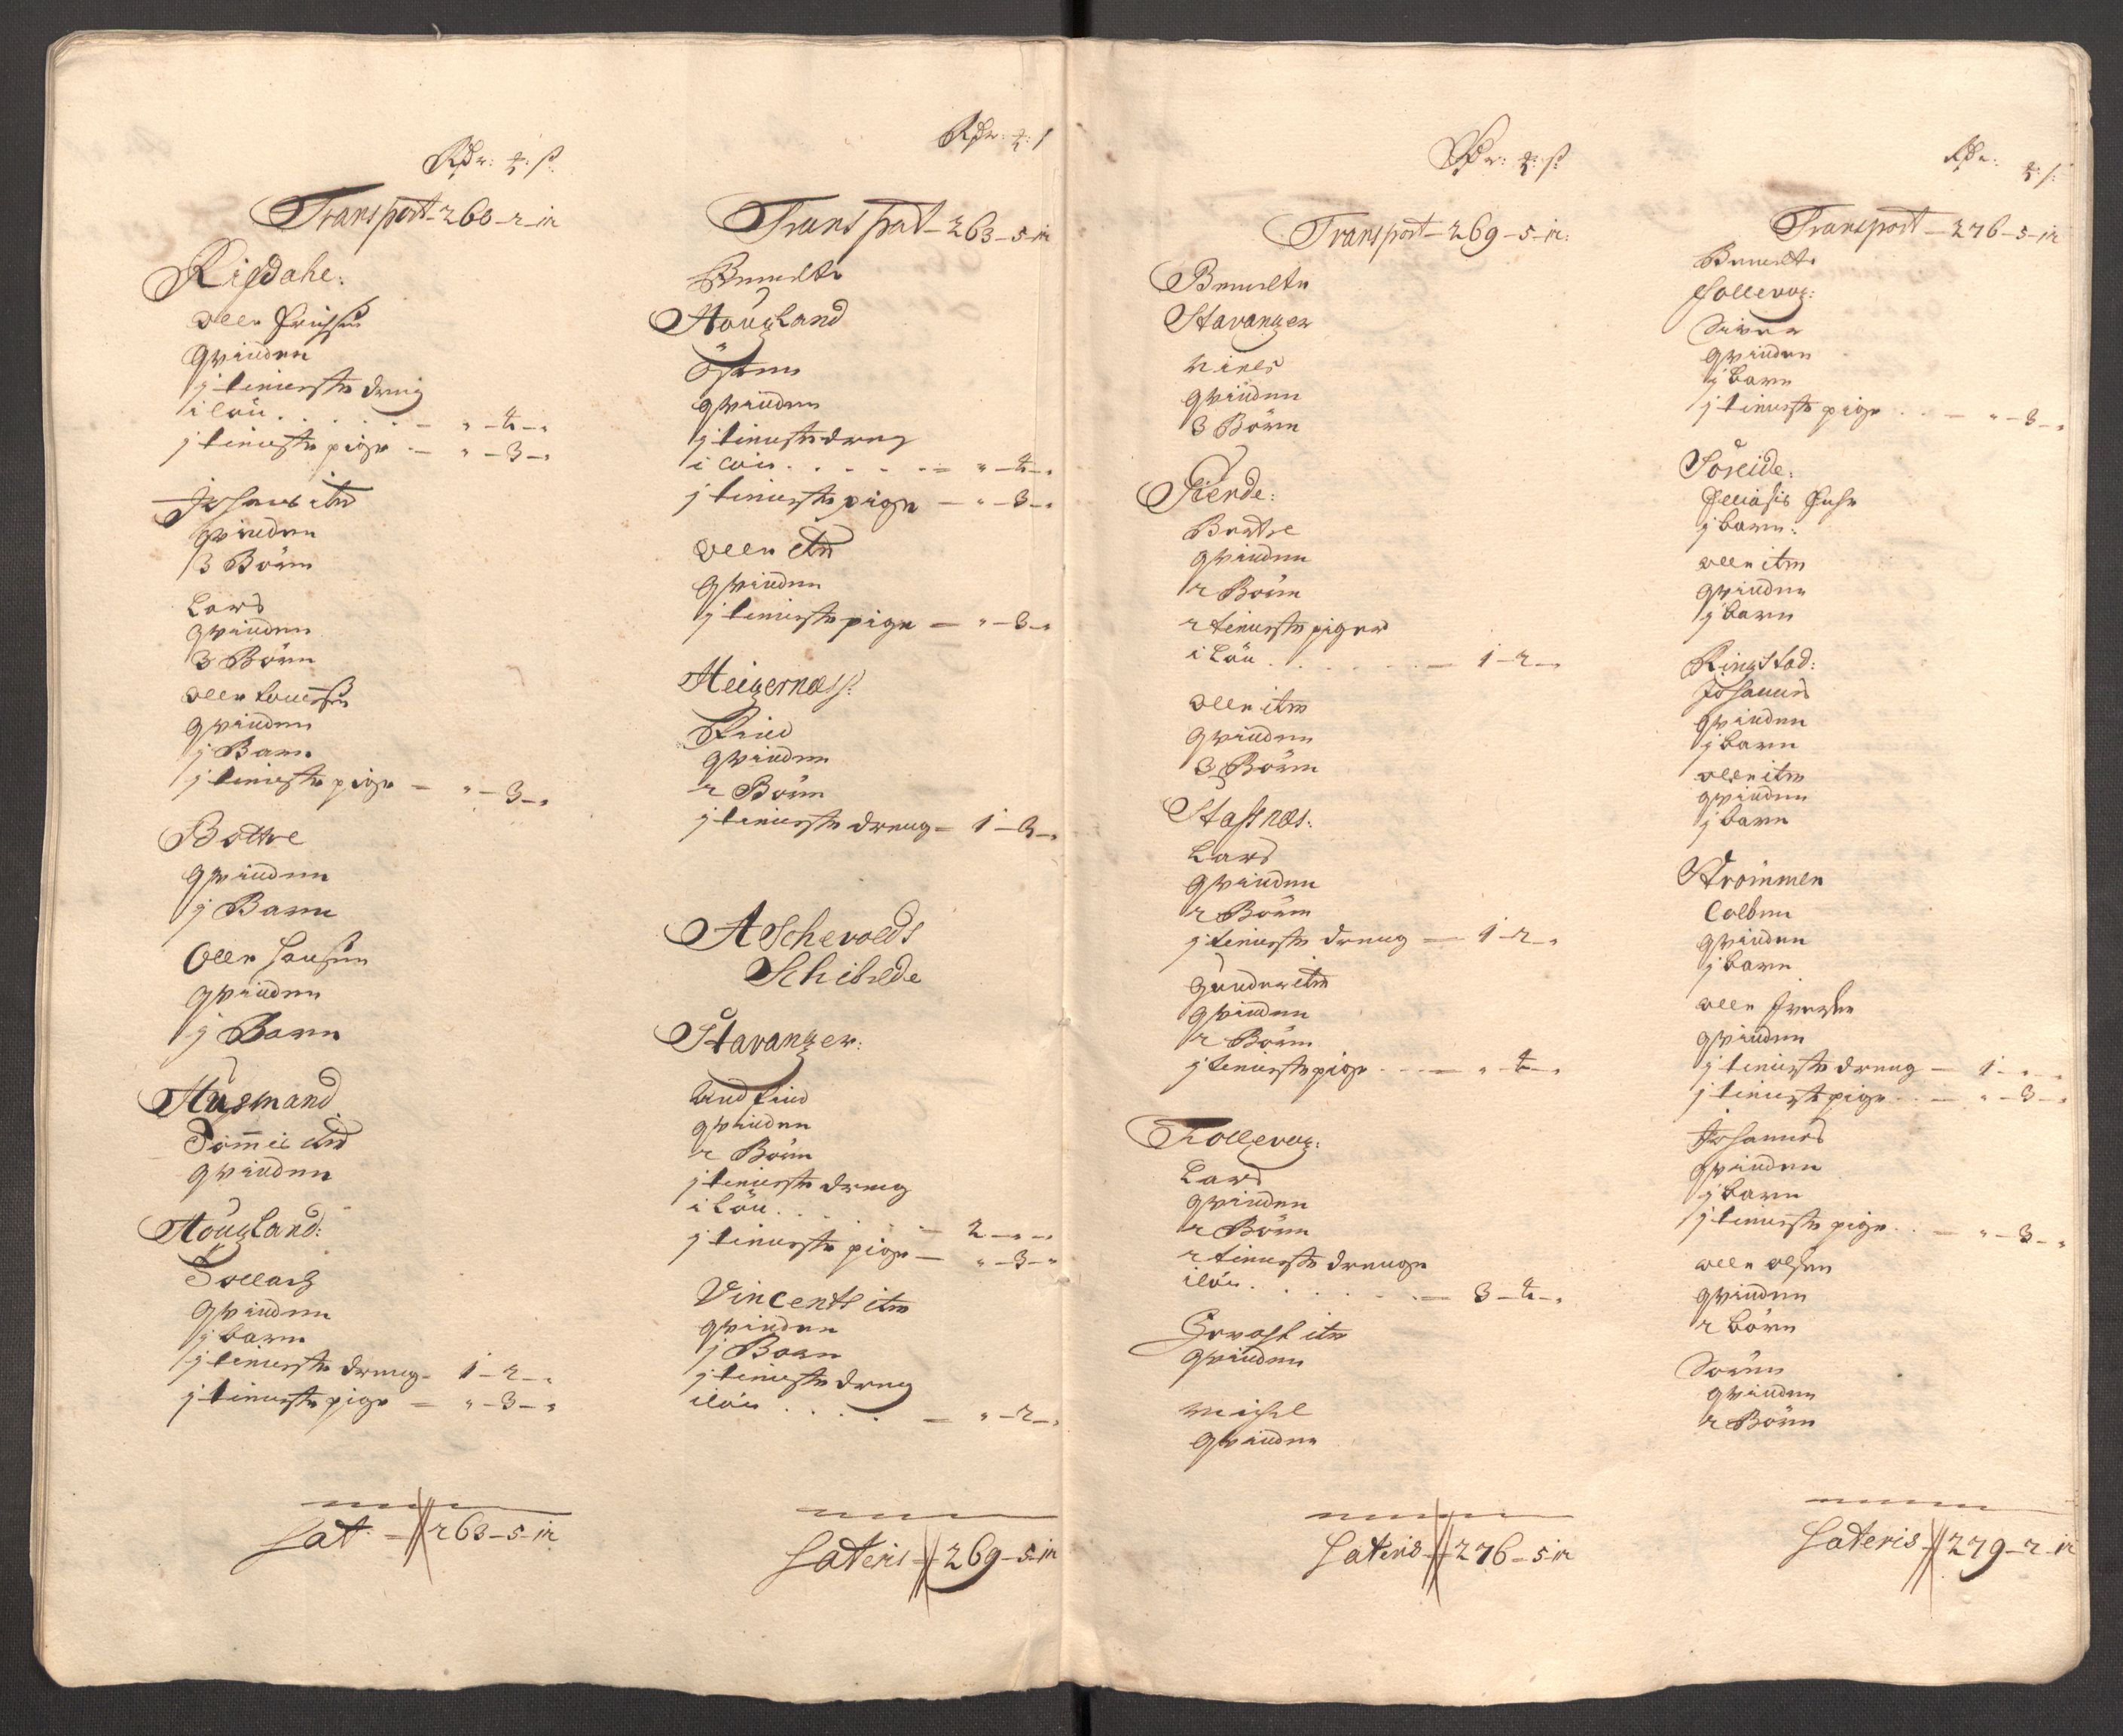 Rdr: ʒ: s:
Transport - 260 - 2 - 12
Rigdahe:
Olle
Qvinden
j tieniste dreng
i løn . . . . . - " - 4 - "
j tieniste pige - " - 3 - "
Johans itm
qvinden
3 Börn
Lars
qvinden
3 Börn
Olle
qvinden
j Barn
j tieniste pige - " - 3 - "
Botte
qvinden
j Barn
Olle Hansen
qvinden
j Barn
Husmand
Tommis itm
qvinden
Hougland:
Tollach
qvinden
j barn
j tieniste dreng - 1 - 2 - "
j tieniste pige - " - 3 - "
Lat: - 263 - 5 - 12
Rdr: ʒ: s
Transport - 263 - 5 - 12
Bemelte
Hougland
Östen
qvinden
j tieniste dreng
i løn . . . . - " - 4 - "
j tieniste pige - " - 3 - "
Olle itm
qvinden
j tieniste pige - " - 3 - "
Heigernæss:
Find
qvinden
2 Börn
j tieniste dreng - 1 - 3 - "
Aschevolds
Schibrede
Stavanger:
Andfind
qvinden
2 Börn
j tieniste dreng
i Løn . . . - 2 - " - "
j tieniste pige - " - 3 - "
Vincents itm
qvinden
j Barn
j tieniste dreng
i løn . . . . - " - 2 - "
Lateris - 269 - 5 - 12
Rdr: ʒ: s:
Transport - 269 - 5 - 12:
Bemelte
Stavanger
Niels
qvinden
3 Börn
Fierde:
Bertre
qvinden
2 Börn
2 tieniste piger
i Løn . . . . . . - 1 - 2 - "
Olle itm
qvinden
3 Börn
Stafnæs:
Lars
qvinden
2 Börn
j tieniste dreng - 1 - 2 - "
Gunder itm
qvinden
2 Börn
j tieniste pige . . - " - 4 - "
Follevog:
Lars
qvinden
2 Börn
2 tieniste drenge
i løn . . . . . . - 3 - 4 - "
itm
qvinden
Michel
qvinden
Lateris - 276 - 5 - 12
Rdr: ʒ: s:
Transport - 276 - 5 - 12
Bemelte
Follevog:
Siver
qvinden
j barn
j tieniste pige . . - " - 3 - "
Söreide:
Elliasis Enke
j barn:
Olle itm
qvinden
j barn
Ringstad:
Johannes
qvinden
j barn
Olle itm
qvinden
j barn
Strömmen
Colben
qvinden
j barn
Olle Iversen
qvinden
j tieniste dreng - 1 - " - "
j tieniste pige . . - " - 3 - "
Johannes
qvinden
j barn
j tieniste pige . . - " - 3 - "
Olle Olsen
qvinden
2 börn
Sören
qvinden
2 Börn
Lateris - 279 - 2 - 12